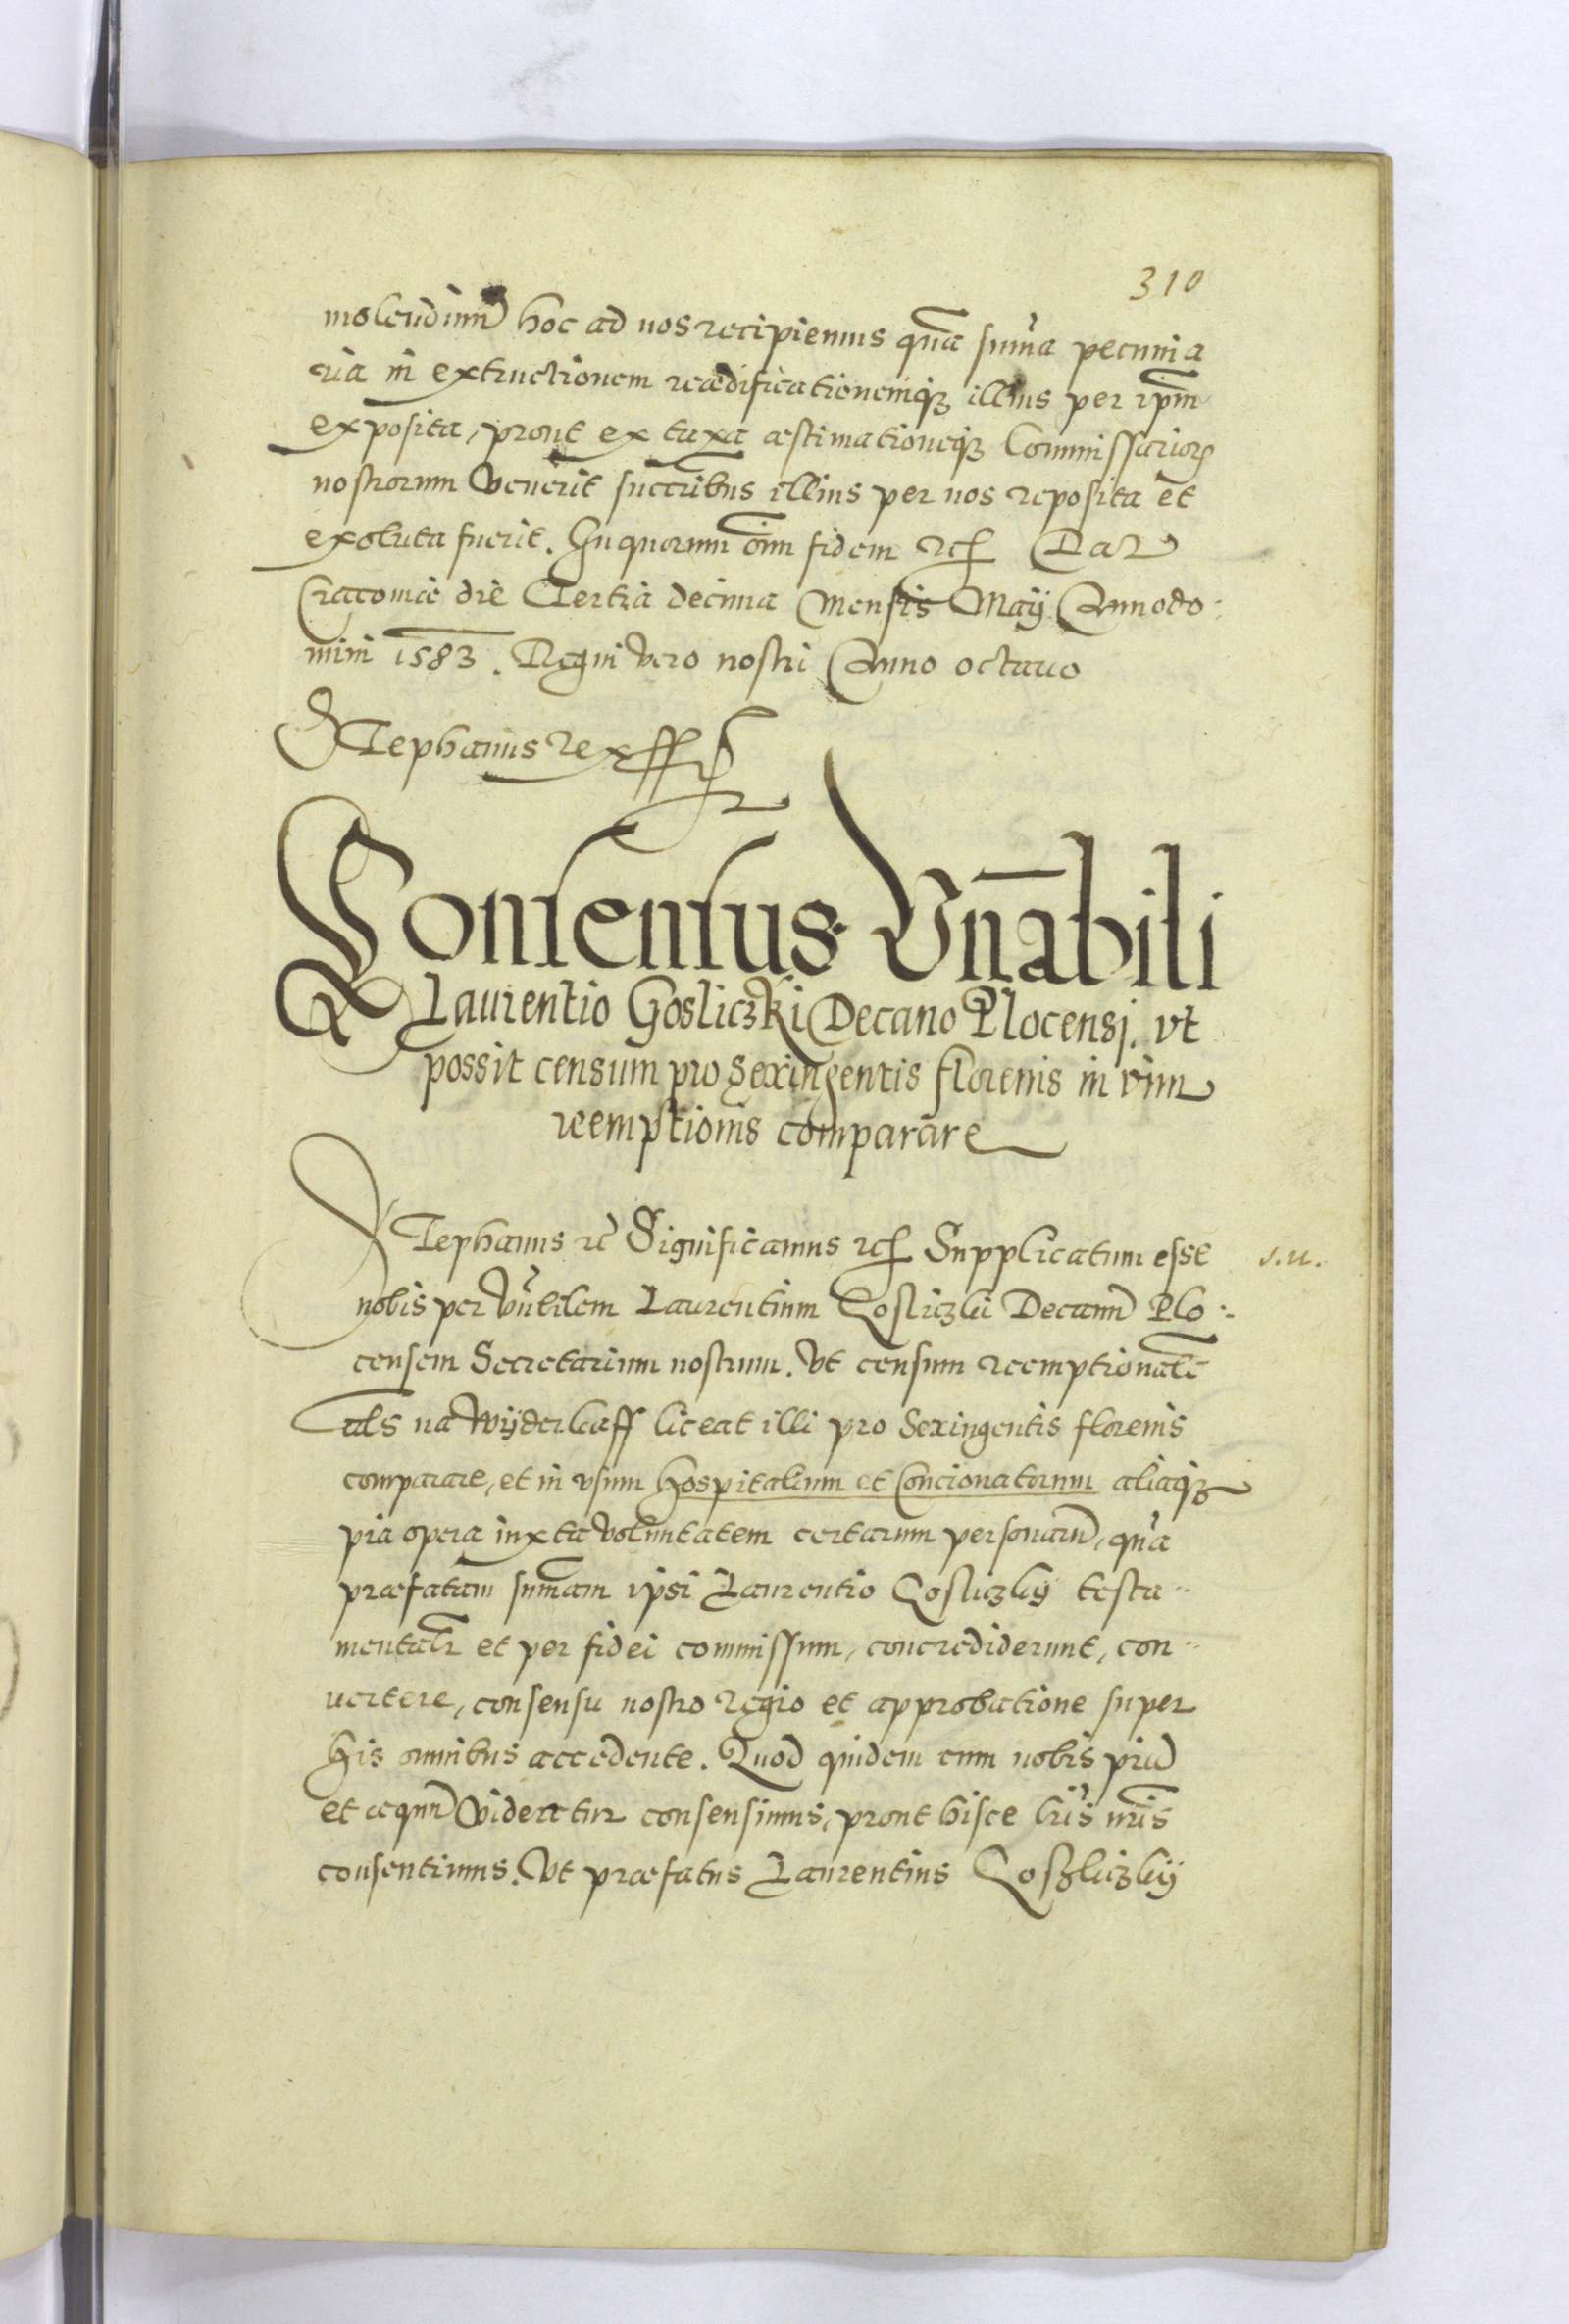 310
molendinū hoc ad nos recipiemus quā sum̄a pecunia
ria in extructionem reædificationemq3 illius per ip̄m
exposita, prout ex taxa æstimationeq3 Commissarior̄
nostrorum venerit succr̄ibus illius per nos reposita et
exoluta fuerit. In quorum om̄ fidem rc̄ Dat
Cracouiæ die Tertia decima Mensis Maÿ Anno do:
mini 1583. Regni vero nostri Anno octauo
Stephanus Rex ssp̄t
Consensus Vn̄abili
Laurentio Gosliczki Decano Plocensj. vt
possit censum pro Sexingentis florenis in vim
reemptionis comparare
Stephanus rc̄ Significamus rc̄ Supplicatum esse
s.u.
nobis per vn̄bilem Laurentium Gosliczki Decanū Plo:
censem Secretarium nostrum. Vt censum reemptionalē
als na wÿderkaff liceat illi pro Sexingentis florenis
comparare, et in vsum hospitalium et Concionatorum aliaq3
pia opera iuxta voluntatem certarum personarū, quæ
præfatam sum̄am ipsi Laurentio Gosliczkÿ testa:
mentalr̄ et per fidei commissum, concrediderunt, con:
uertere, consensu nostro regio et approbatione super
his omnibus accedente. Quod quidem cum nobis piū
et æquū videatur consensimus, prout hisce lr̄is nr̄is
consentimus. Vt præfatus Laurentius Goszliczkÿ